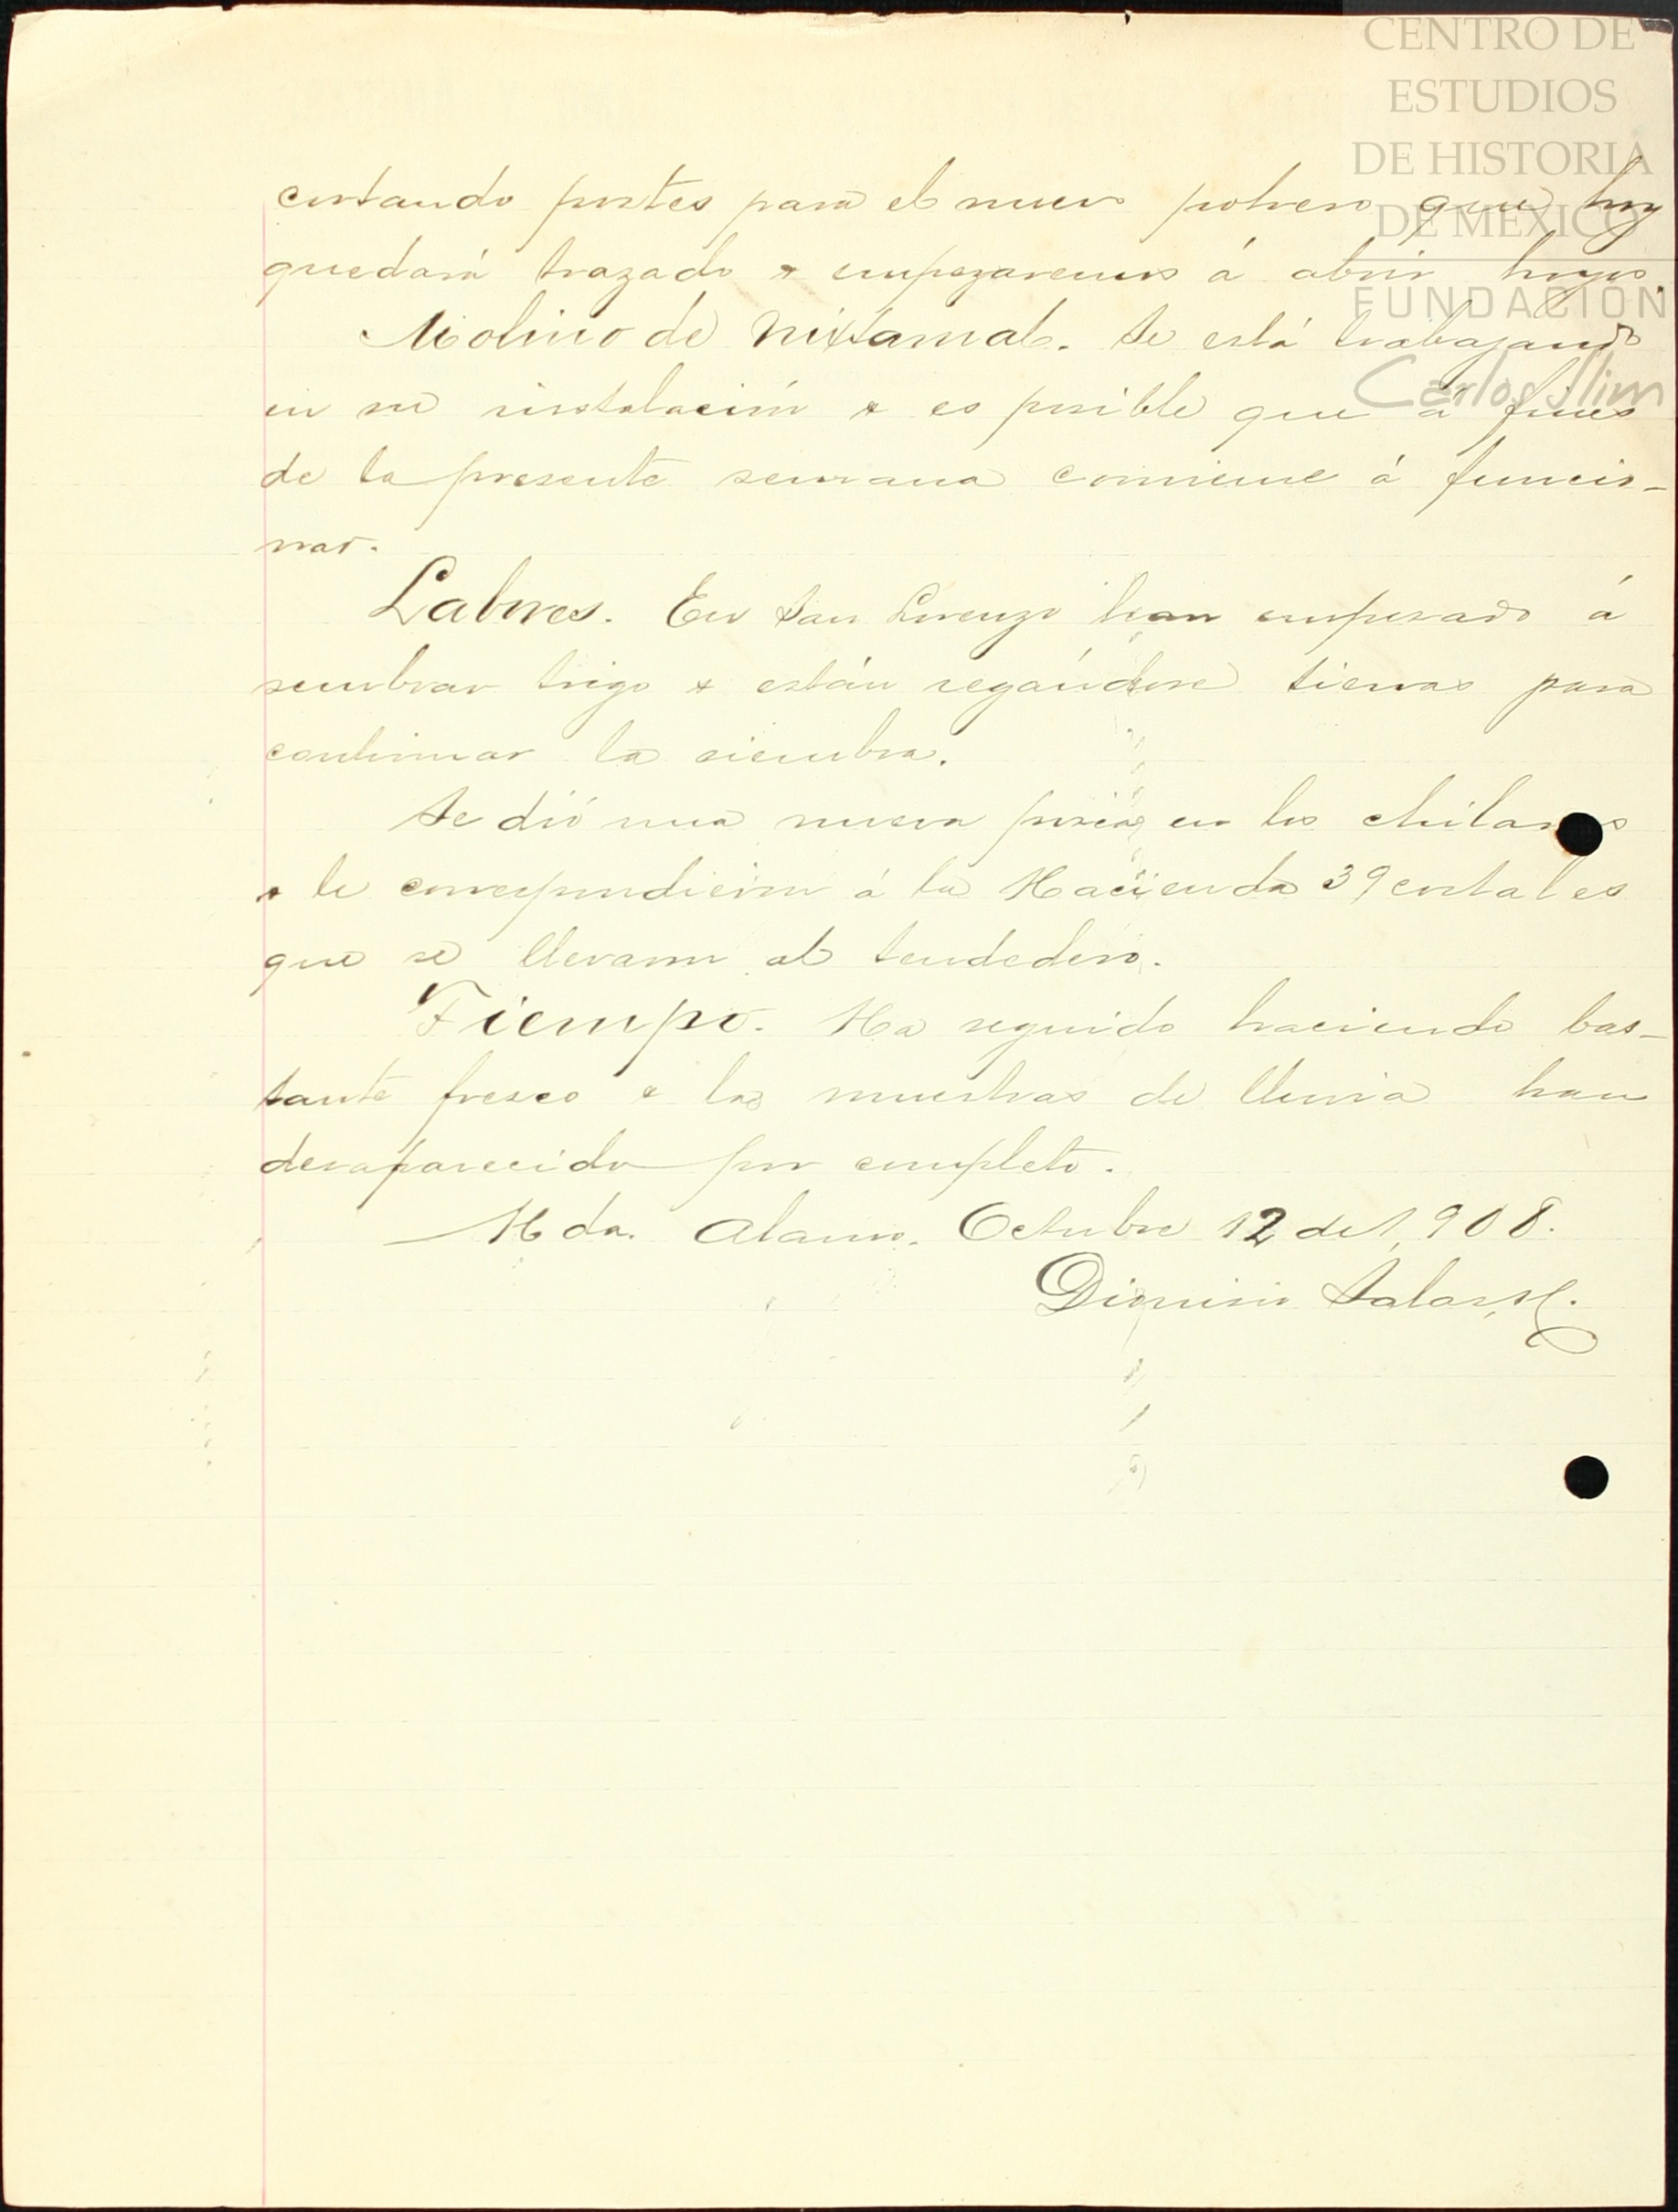 CENTRO DE
ESTUDIOS
DE HISTORIA
DE MEXICO
FUNDACIÓN
Carlos Slim
cortando postes para el nuevo potrero que hoy
quedará trazado & empezaremos á abrir hoyos.
Molino de Nixtamal. Se está trabajando
en su instalación & es posible que á fines
de la presente semana comience á funcio-
nar.
Labores. En San Lorenzo han empezado á
sembrar trigo & están regándose tierras para
continuar la siembra.
Se dió una nueva pizca en los chilares
& le correspondieron á la Hacienda 39 costales
que se llevaron al tendedero.
Tiempo. Ha seguido haciendo bas-
tante fresco & las muestras de lluvia han
desaparecido por completo.
Hda. Alamo. Octubre 12 de 1,908.
Dionisio Salas